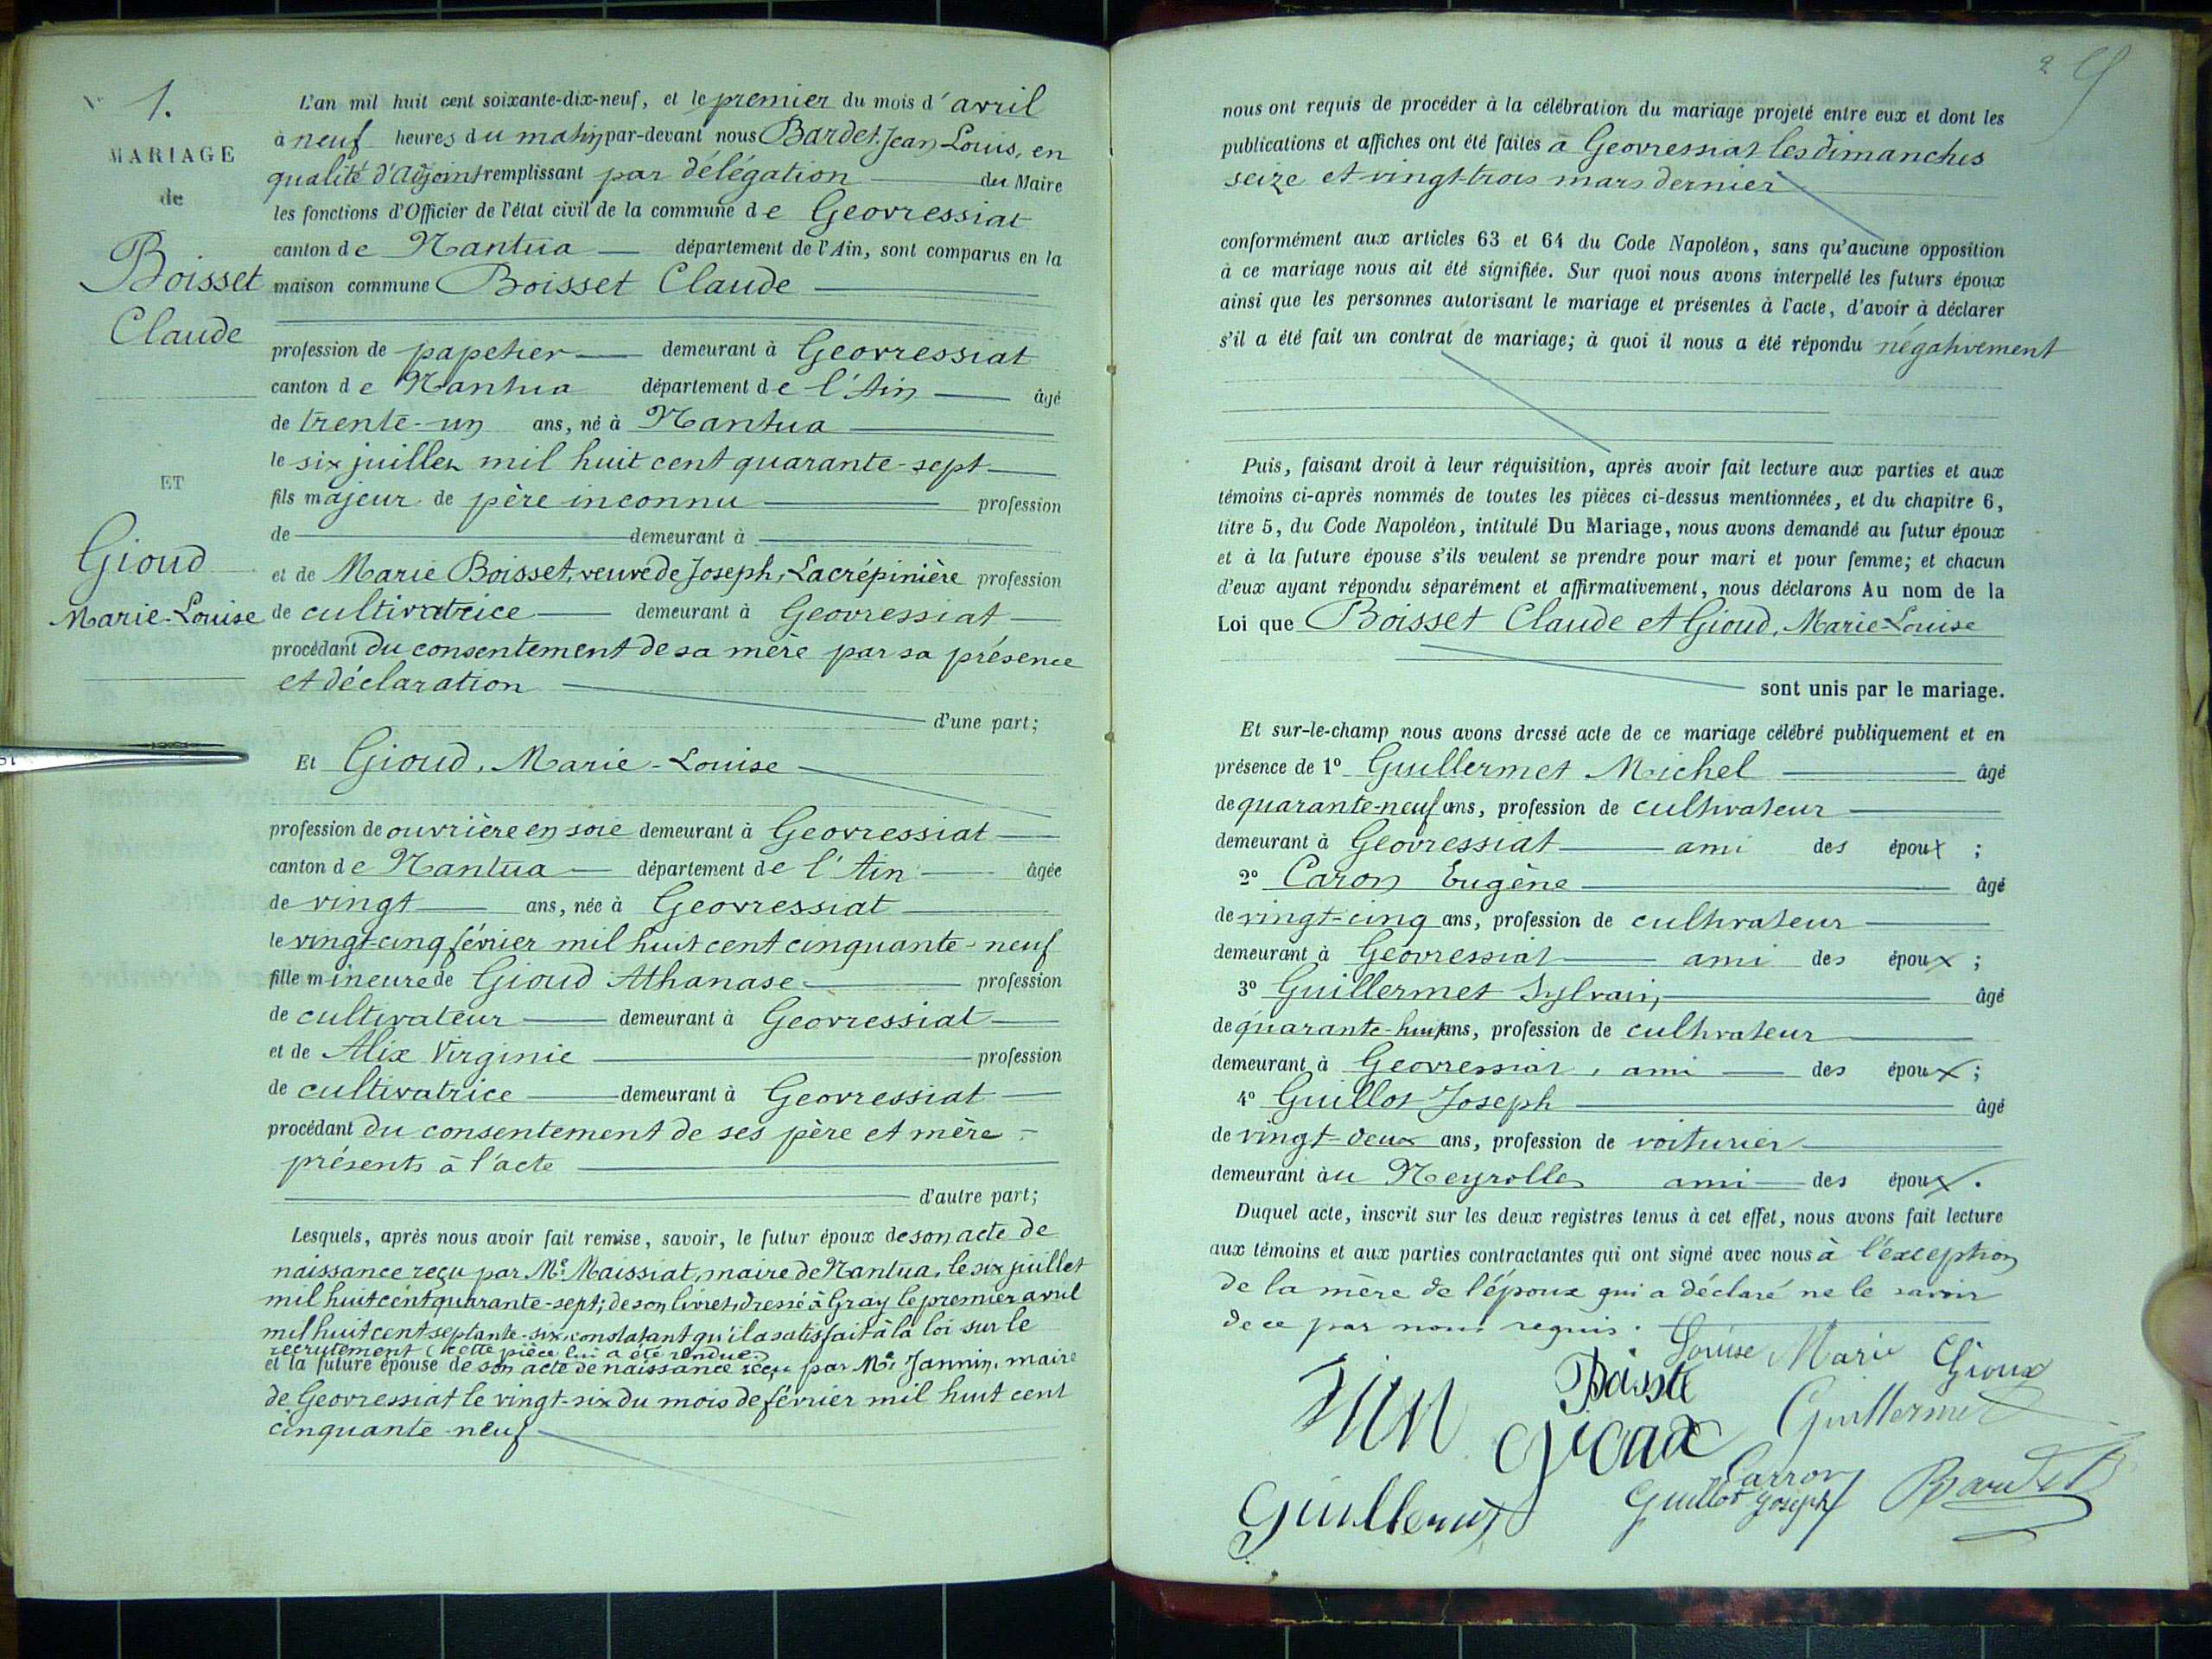 N° 1.
MARIAGE
de
Boisset
Claude
ET
Gioud
Marie-Louise
L'an mil huit cent soixante-dix-neuf, et le premier du mois d'avril
à neuf heures du matin par-devant nous Bardet Jean-Louis, en
qualité d'Adjoint remplissant par délégation du Maire
les fonctions d'Officier de l'état civil de la commune de Geovressiat
canton de Nantua département de l'Ain, sont comparus en la
maison commune Boisset Claude
profession de papetier demeurant à Geovressiat
canton de Nantua département de l'Ain âgé
de trente-un ans, né à Nantua
le six juillet mil huit cent quarante-sept
fils majeur de père inconnu profession
de demeurant à
et de Marie Boisset, veuve de Joseph, Lacrépinière profession
de cultivatrice demeurant à Geovressiat
procédant du consentement de sa mère par sa présence
et déclaration
d'une part;
Et Gioud, Marie-Louise
profession de ouvrière en soie demeurant à Geovressiat
canton de Nantua département de l'Ain âgée
de vingt ans, née à Geovressiat
le vingt-cinq février mil huit cent cinquante-neuf
fille mineure de Gioud Athanase profession
de cultivateur demeurant à Geovressiat
et de Alix Virginie profession
de cultivatrice demeurant à Geovressiat
procédant du consentement de ses père et mère
présents à l'acte
d'autre part;
Lesquels, après nous avoir fait remise, savoir, le futur époux de son acte de
naissance reçu par Me Maissiat, maire de Nantua, le six juillet
mil huit cent quarante-sept; de son livret, dressé à Gray le premier avril
mil huit cent septante-six, constatant qu'il a satisfait à la loi sur le
recrutement (cette pièce lui a été rendue)
et la future épouse de son acte de naissance reçu par Me Jannin, maire
de Geovressiat le vingt-six du mois de février mil huit cent
cinquante-neuf
2 9
nous ont requis de procéder à la célébration du mariage projeté entre eux et dont les
publications et affiches ont été faites à Geovressiat les dimanches
seize et vingt-trois mars dernier
conformément aux articles 63 et 64 du Code Napoléon, sans qu'aucune opposition
à ce mariage nous ait été signifiée. Sur quoi nous avons interpellé les futurs époux
ainsi que les personnes autorisant le mariage et présentes à l'acte, d'avoir à déclarer
s'il a été fait un contrat de mariage; à quoi il nous a été répondu négativement
Puis, faisant droit à leur réquisition, après avoir fait lecture aux parties et aux
témoins ci-après nommés de toutes les pièces ci-dessus mentionnées, et du chapitre 6,
titre 5, du Code Napoléon, intitulé Du Mariage, nous avons demandé au futur époux
et à la future épouse s'ils veulent se prendre pour mari et pour femme; et chacun
d'eux ayant répondu séparément et affirmativement, nous déclarons Au nom de la
Loi que Boisset Claude et Gioud, Marie-Louise
sont unis par le mariage.
Et sur-le-champ nous avons dressé acte de ce mariage célébré publiquement et en
présence de 1° Guillermet Michel âgé
de quarante-neuf ans, profession de cultivateur
demeurant à Geovressiat ami des époux ;
2° Caron Eugène âgé
de vingt-cinq ans, profession de cultivateur
demeurant à Geovressiat ami des époux ;
3° Guillermet Sylvain, âgé
de quarante-huit ans, profession de cultivateur
demeurant à Geovressiat, ami des époux ;
4° Guillot Joseph âgé
de vingt-deux ans, profession de voiturier
demeurant au Neyrolles ami des époux.
Duquel acte, inscrit sur les deux registres tenus à cet effet, nous avons fait lecture
aux témoins et aux parties contractantes qui ont signé avec nous à l'exception
de la mère de l'époux qui a déclaré ne le savoir
de ce par nous requis.
Louise Marie Gioux
Guillermet
Carron
Guillot Joseph
Bardet
Guillermet